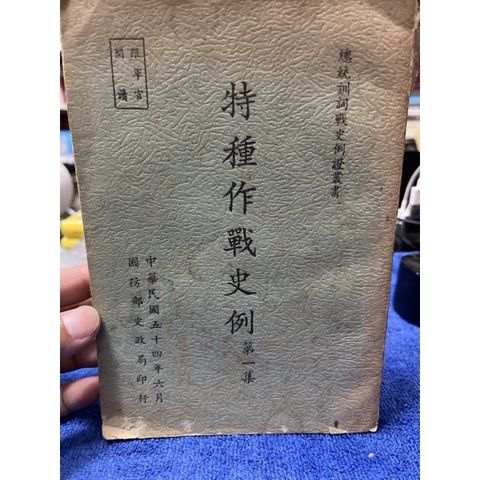 總統訓詞戰史例證叢書
特種作戰史例 第一集
限軍官
閱讀
中華民國五十四年六月
國防部史政局印行